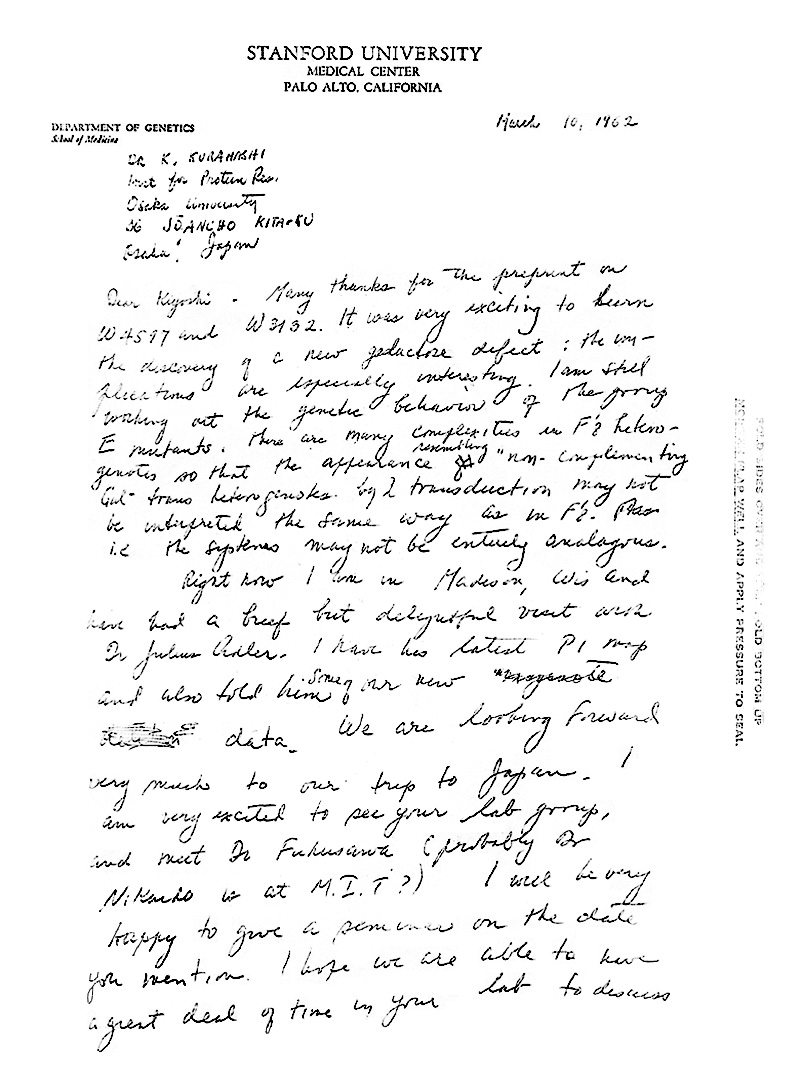 STANFORD UNIVERSITY
MEDICAL CENTER
PALO ALTO, CALIFORNIA
DEPARTMENT OF GENETICS
School of Medicine
March 10, 1962
Dr K. KURAHASHI
Inst for Protein Res.
Osaka University
36 JŌANCHO KITA-KU
Osaka, Japan
Dear Kiyoshi - Many thanks for the preprint on
W4597 and W3132. It was very exciting to learn
the discovery of a new galactose defect : the im-
plications are especially interesting. I am still
working out the genetic behavior of the group
E mutants. There are many complexities in F's hetero-
genotes so that the appearance resembling "non-complementing
Gal- trans heterogenotes by λ transduction may not
be interpreted the same way as in F's.
i.e the systems may not be entirely analogous.
Right now I am in Madison, Wis and
have had a brief but delightful visit with
Dr Julius Adler. I have his latest P1 map
and also told him some of our new
data. We are looking forward
very much to our trip to Japan. I
am very excited to see your lab group,
and meet Dr Fukusawa (probably Dr
Nikaido is at M.I.T?) I will be very
happy to give a seminar on the date
you mention. I hope we are able to have
a great deal of time in your lab to discuss
AND APPLY PRESSURE TO SEAL